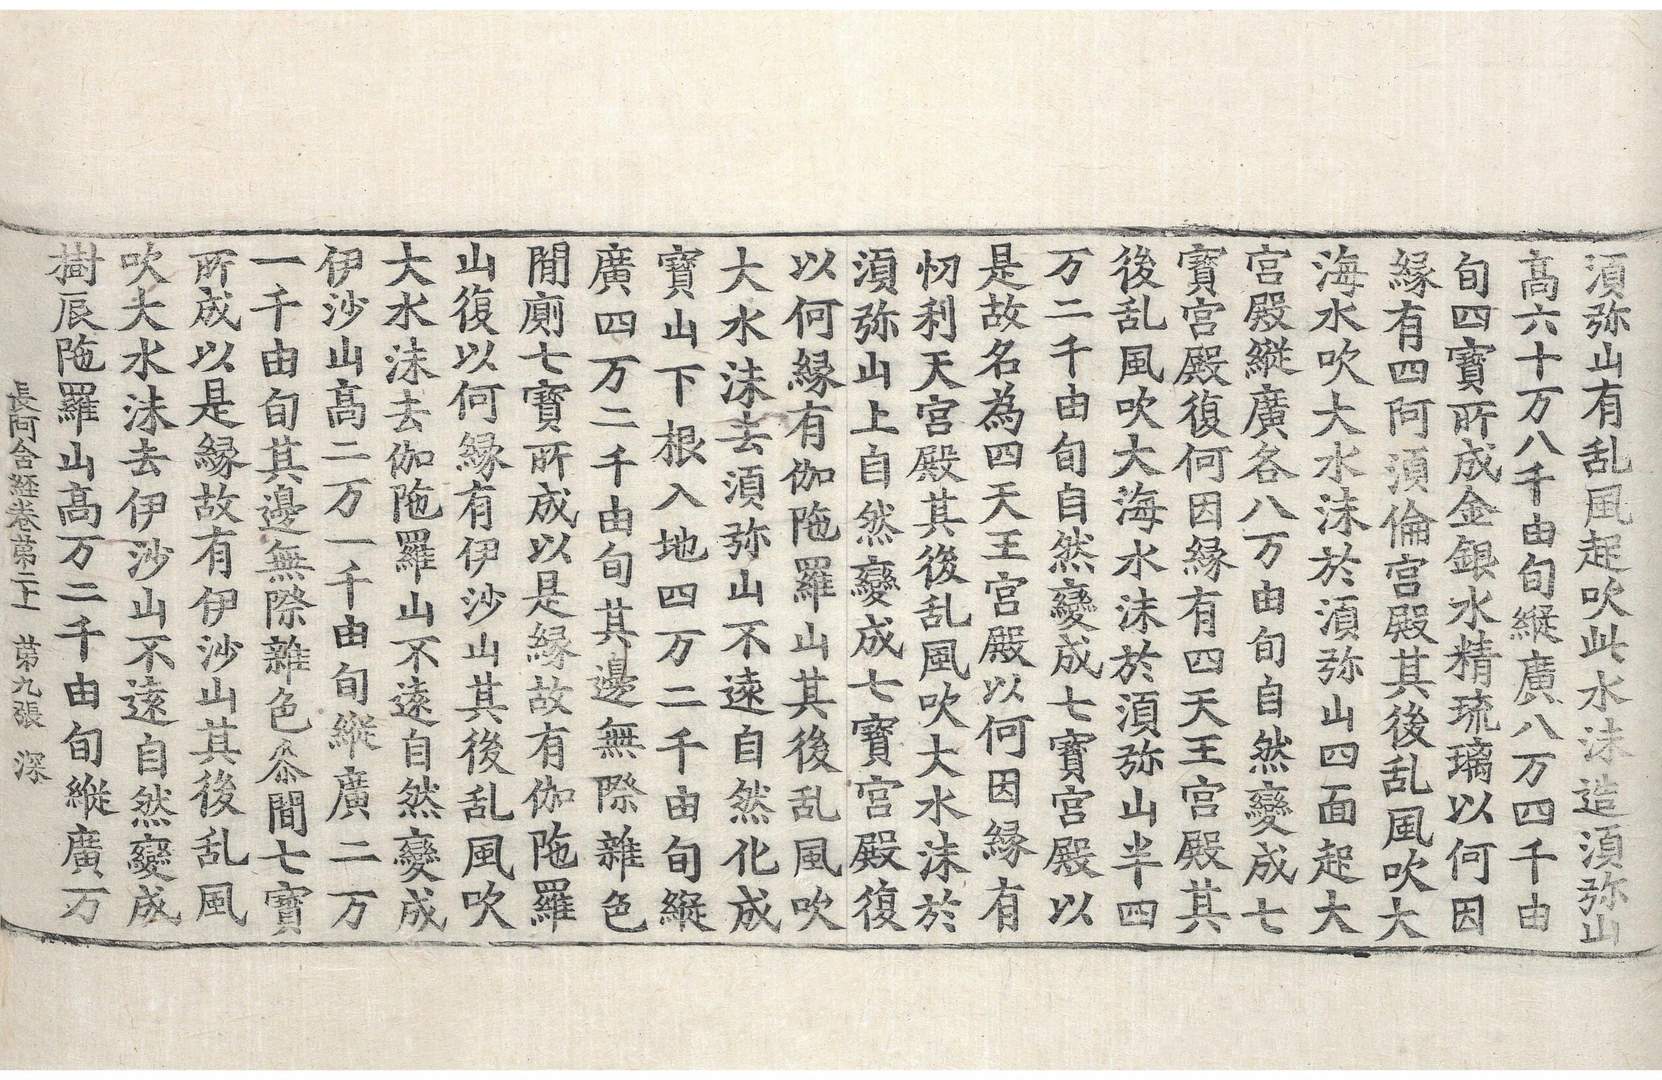 湏弥山有乱風起吹此水沫造湏弥山
髙六十万八千由旬縱廣八万四千由
旬四寶所成金銀水精琉璃以何因
縁有四阿湏倫宫殿其後乱風吹大
海水吹大水沫於湏弥山四面起大
宫殿縱廣各八万由旬自然變成七
寶宫殿復何因縁有四天王宫殿其
後乱風吹大海水沫於湏弥山半四
万二千由旬自然變成七寶宫殿以
是故名為四天王宫殿以何因縁有
忉利天宫殿其後乱風吹大水沫於
湏弥山上自然變成七寶宫殿復
以何縁有伽陁羅山其後乱風吹
大水沫去湏弥山不遠自然化成
寶山下根入地四万二千由旬縱
廣四万二千由旬其邊無際雜色
閒廁七寶所成以是縁故有伽陁羅
山復以何縁有伊沙山其後乱風吹
大水沫去伽陁羅山不遠自然變成
伊沙山髙二万一千由旬縱廣二万
一千由旬其邊無際雜色叅閒七寶
所成以是縁故有伊沙山其後乱風
吹大水沫去伊沙山不遠自然變成
樹辰陁羅山髙万二千由旬縱廣万
長阿含經卷第二十一 第九張 深